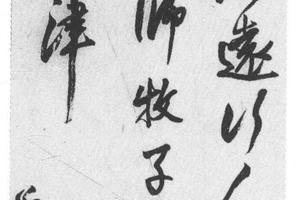 遠行
師牧子
津